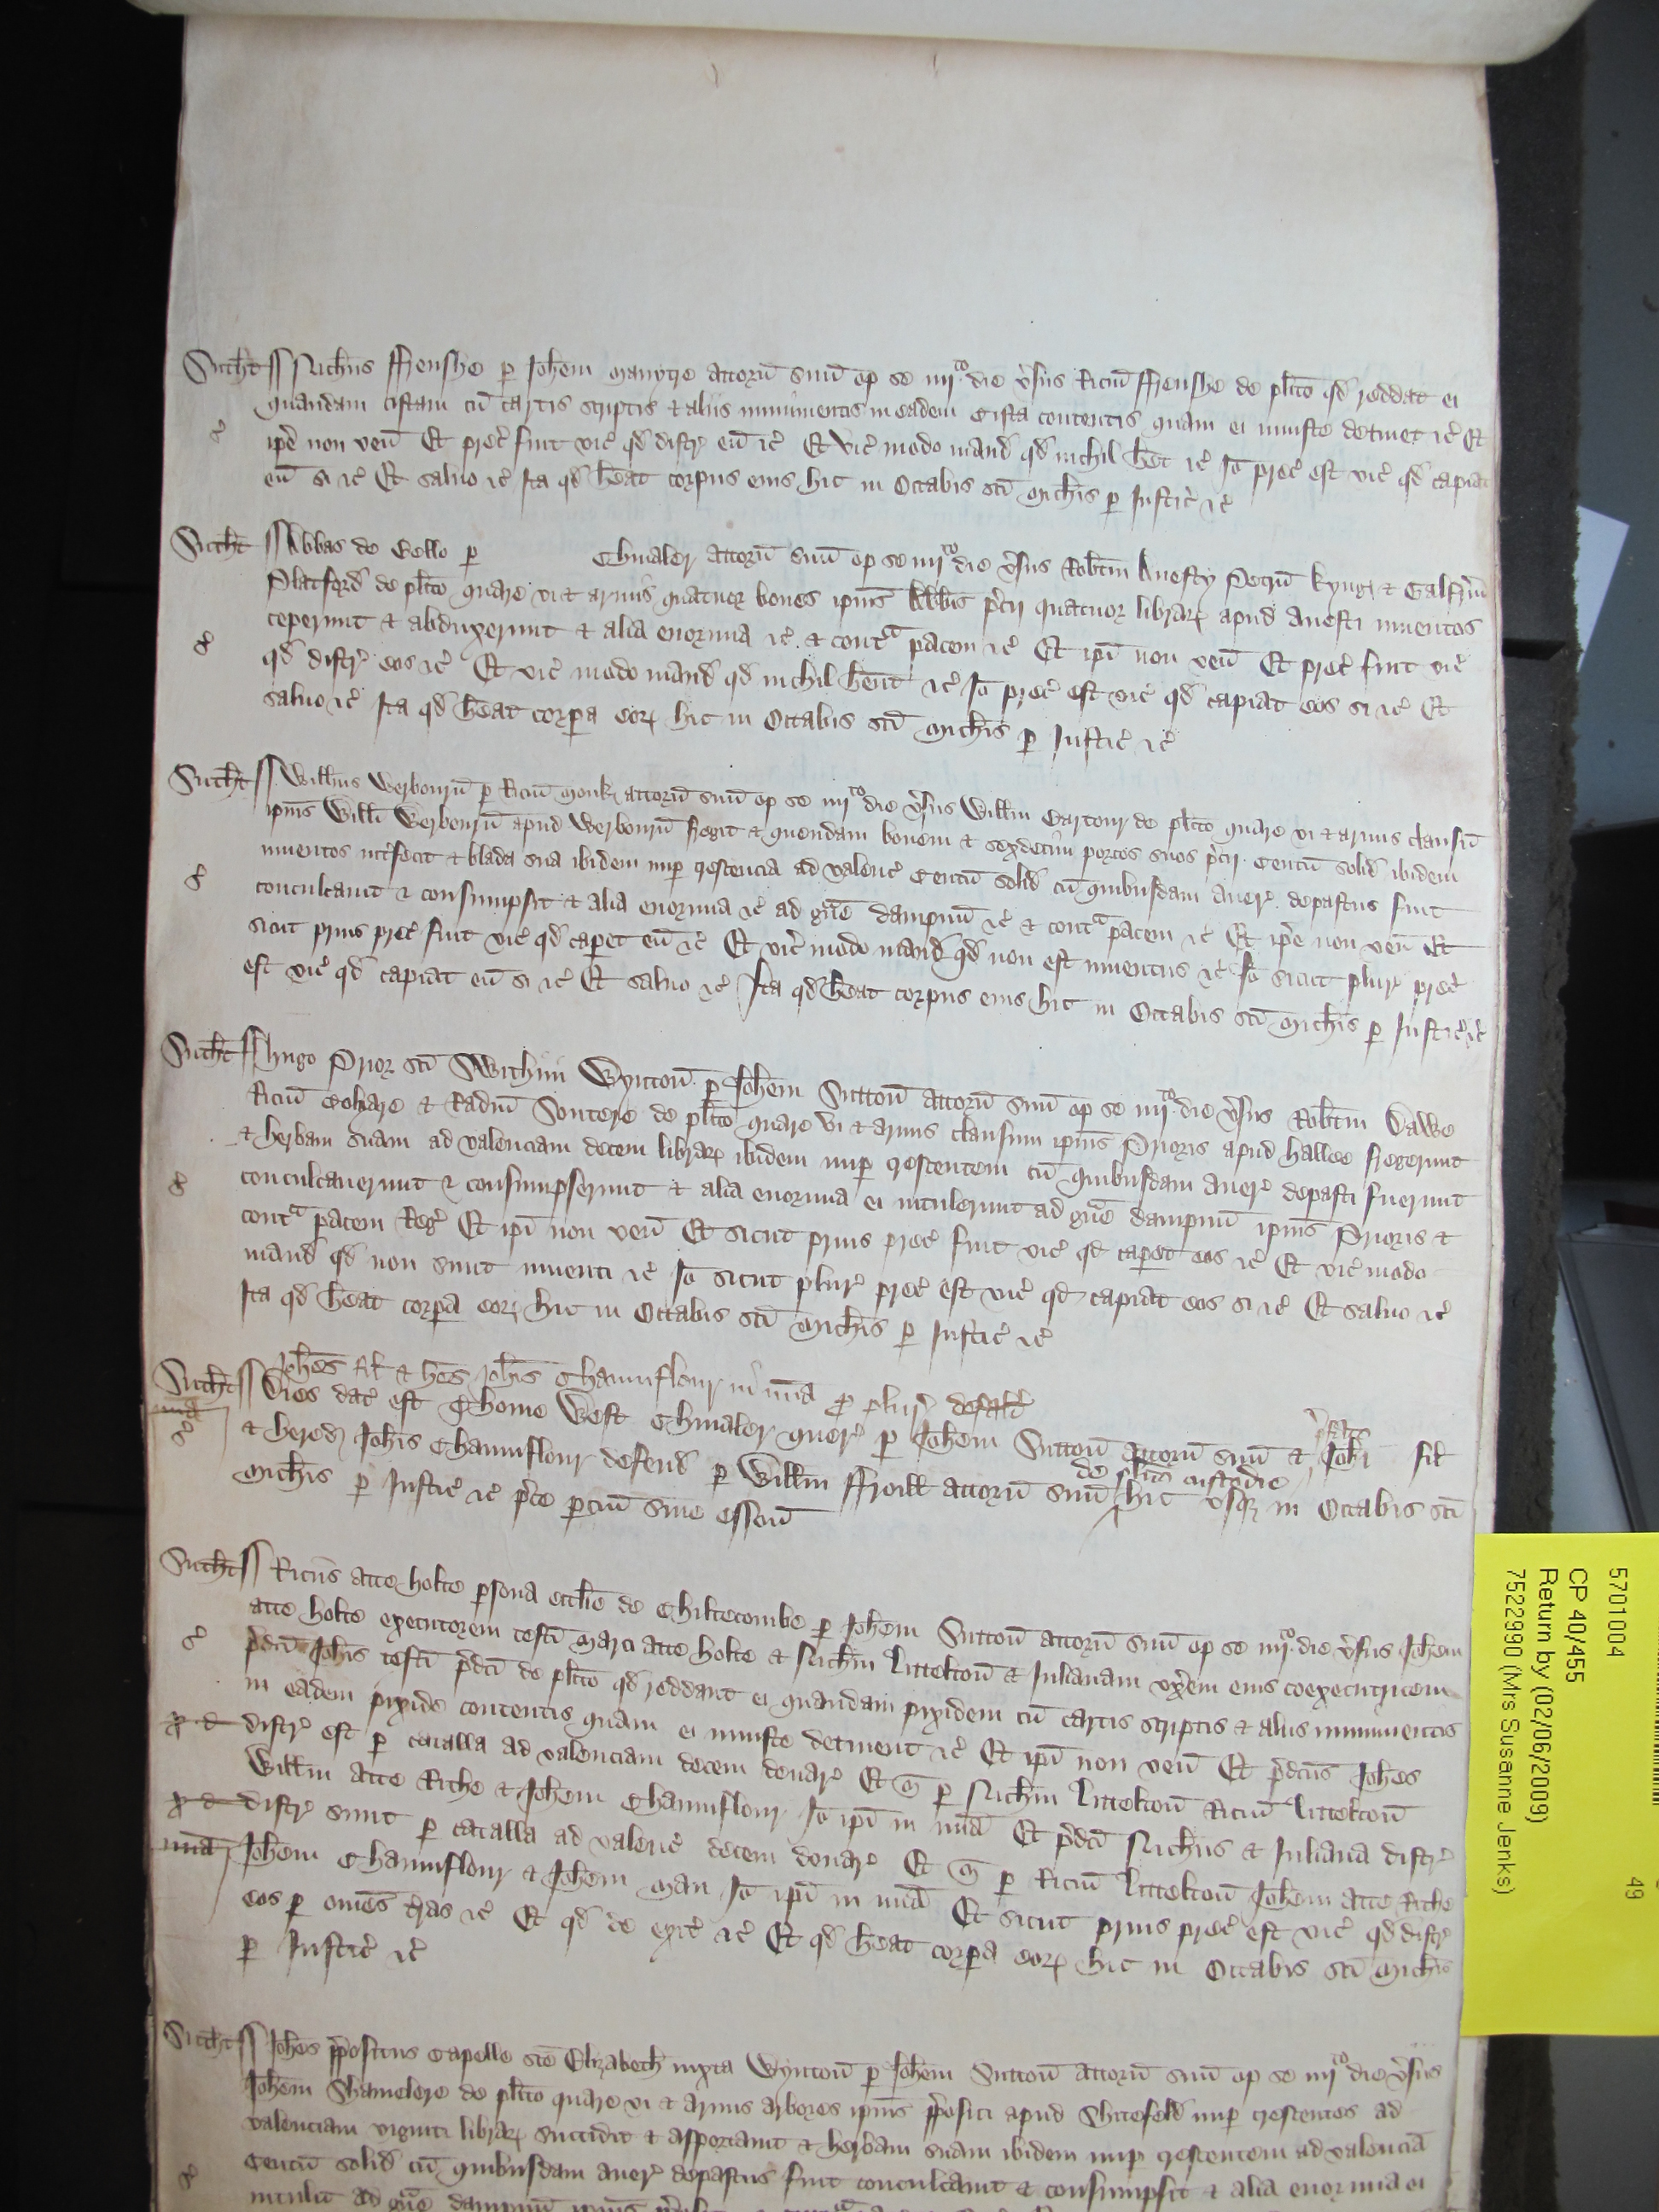 Sutht Nichus Frenshe p Johem Manytre attorn suu op se iiijto die vsus Ricm Frenshe de plito qd reddat ei
quandam cistam cu cartis scriptis & aliis munimentis in eadem Cista contentis quam ei iniuste detinet &c Et
ipe non ven Et prec fuit vic qd distr eu &c Et vic modo mand qd nichil het &c Io prec est vic qd capiat
eu si &c Et saluo &c Ita qd heat corpus eius hic in Octabis sci Michis p Justic &c
Sutht Abbas de Bello p Chiualer attorn suu op se iiijto die vsus Robtm Anesty Petru Kyng & Galfrm
Platford de plito quare vi & armis quatuor boues ipius Abbis pcii quatuor librar apud Anesti inuentos
ceperunt & abduxerunt & alia enormia &c & contra pacem &c Et ipi non ven Et prec fuit vic
qd distr eos &c Et vic modo mand qd nichil hent &c Io prec est vic qd capiat eos si &c Et
saluo &c Ita qd heat corpa eor hic in Octabis sci Michis p Justic &c
Sutht Willms Werbourn p Ricm Monk attorn suu op se iiijto die vsus Willm Cartour de plito quare vi & armis clausu
ipius Willi Werbourn apud Werbourn fregit & quendam bouem & sexdecim porcos suos pcii Centu solid ibidem
inuentos intfecit & blada sua ibidem nup crescencia ad valenc Centu solid cu quibusdam auer depastus fuit
conculcauit & consumpsit & alia enormia &c ad gue dampnu &c & contra pacem &c Et ipe non ven Et
sicut prius prec fuit vic qd capet eu &c Et vic modo mand qd non est inuentus &c Io sicut plur prec
est vic qd capiat eu si &c Et saluo &c Ita qd heat corpus eius hic in Octabis sci Michis p Justic &c
Sutht Hugo Prior sci Swithini Wynton p Johem Sutton attorn suu op se iiijto die vsus Robtm Dawe
Ricm Cohare & Radm Soutere de plito quare vi & armis clausum ipius Prioris apud Hallee fregerunt
& herbam suam ad valenciam decem librar ibidem nup crescentem cu quibusdam auer depasti fuerunt
conculcauerunt & consumpserunt & alia enormia ei intulerunt ad gue dampnu ipius Prioris &
contra pacem Reg Et ipi non ven Et sicut prius prec fuit vic qd capet eos &c Et vic modo
mand qd non sunt inuenti &c Io sicut plur prec est vic qd capiat eos si &c Et saluo &c
Ita qd heat corpa eor hic in Octabis sci Michis p Justic &c
Johes fil & hes Johis Chaunflour in mia p plur defalt
Sutht Dies dat est Thome West Chiualer quer p Johem Sutton attorn suu & Johi fil
mia & hered Johis Chaunflour defend p Willm Froill attorn suu de plito custodie hic vsq in Octabis sci
Michis p Justic &c pce parciu sine esson
Sutht Ricus atte Holte psona ecclie de Chiltecombe p Johem Sutton attorn suu op se iiijto die vsus Johem
atte Holte executorem testi Marci atte Holte & Nichm Littelton & Julianam vxem eius coexecutricem
pdci Johis testi pdci de plito qd reddant ei quandam pixidem cu cartis scriptis & aliis munimentis
in eadem pixide contentis quam ei iniuste detinent &c Et ipi non ven Et pdcus Johes
x d distr est p catalla ad valenciam decem denar Et m p Nichm Littelton Ricm Littelton
Willm atte Riche & Johem Chaunflour Io ipi in mia Et pdci Nichus & Juliana distr
x d distr sunt p catalla ad valenc decem denar Et m p Ricm Littelton Johem atte Riche
mia Johem Chaunflour & Johem Man Io ipi in mia Et sicut prius prec est vic qd distr
eos p omes tras &c Et qd de exit &c Et qd heat corpa eor hic in Octabis sci Michis
p Justic &c
Sutht Johes ppositus Capelle sce Elizabeth iuxta Wynton p Johem Sutton attorn suu op se iiijto die vsus
Johem Shamelere de plito quare vi & armis arbores ipius ppositi apud Shitefeld nup crescentes ad
valenciam viginti librar succidit & asportauit & herbam suam ibidem nup crescentem ad valencia
Centu solid cu quibusdam auer depastus fuit conculcauit & consumpsit & alia enormia ei
intulit ad gue dampnu ipius
5701004
49
CP 40/455
Return by (02/06/2009)
7522990 (Mrs Susanne Jenks)